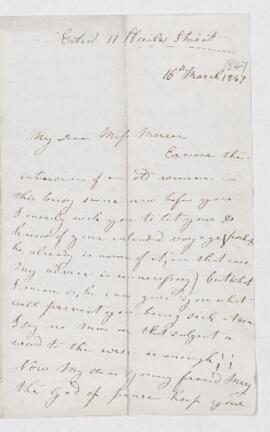 11 Stailes Street
1847
16th March 1847
My dear Miss Mercer
Excuse the
intrusion of an old woman in
this busy scene now before you.
I merely wish you to let your Dr
know of your intended voyage (perhaps
he already is aware of it, in that case
My advice is unnecessary) but what
I mean is, he can give you what
will prevent you being sick - now
I say no more on that subject a
word to the wise is enough!!
Now My dear young friend May
the God of peace keep your